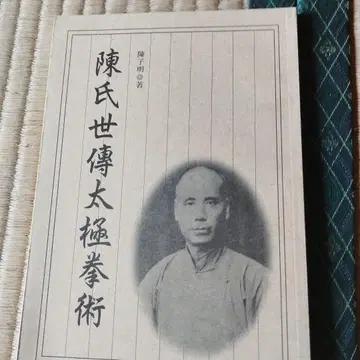 陳氏世傳太極拳術
陳子明◎著